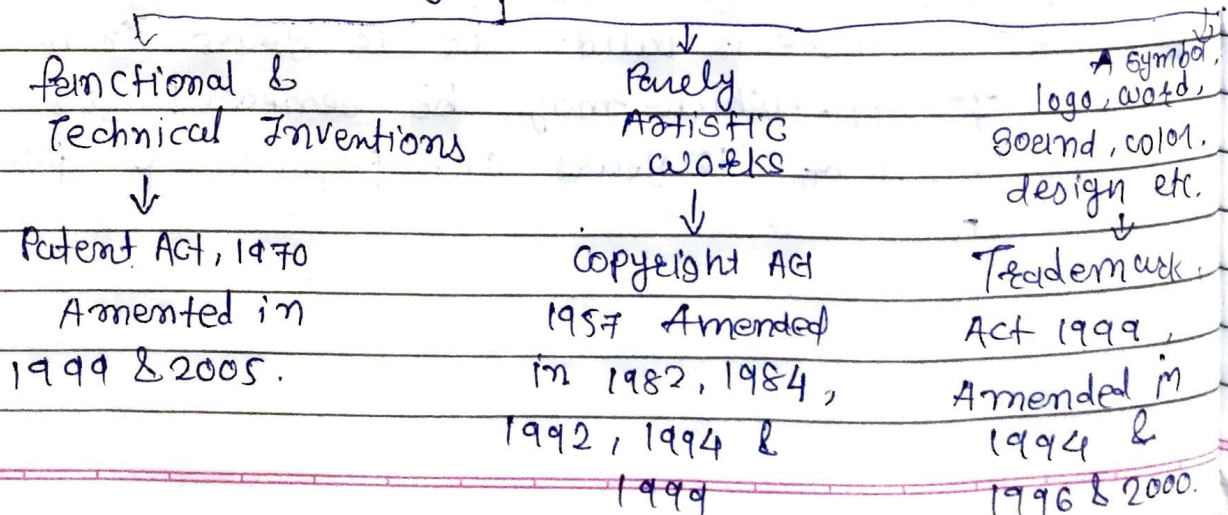 functional &
Technical Inventions
↓
Patent Act, 1970
Amented in
1999 & 2005.
Purely
Artistic
works
↓
Copyright Act
1957 Amended
in 1982, 1984,
1992, 1994 &
1999
A symbol,
logo, word,
Sound, color.
design etc.
↓
Trademark
Act 1999,
Amended in
1994 &
1996 & 2000.